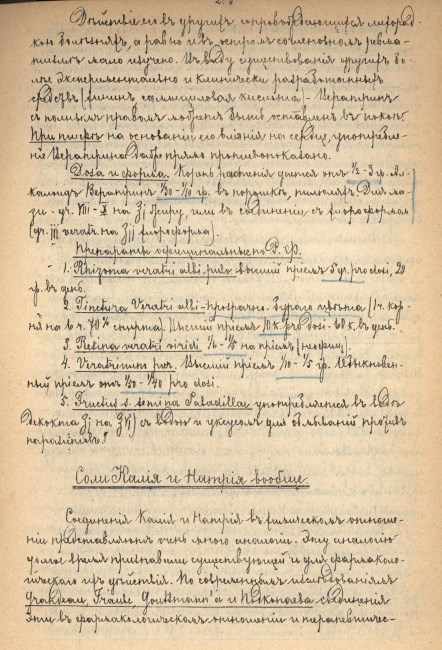 Дѣйствіе его въ другихъ, сопровождающихся лихорад-
кою болѣзняхъ, а равно и въ остромъ сочленовномъ ревма-
тизмѣ мало изучено. Въ виду существованія другихъ бо-
лѣе экспериментально и клинически разработанныхъ
средствъ (хининъ, салициловая кислота) – Вератринъ
съ полнымъ правомъ можетъ быть оставленъ въ покоѣ.
При тифѣ на основаніи его вліянія на сердце, употребле-
ніе Вератрина даже прямо противопоказано.
Доза и форма. Корень растенія дается отъ ½-3 гр. Ал-
калоидъ Вератринъ 1/30 - 1/10 гр. въ порошкѣ, пилюляхъ. Для ма-
зи - gr. VIII - X на ℥j жиру, или въ соединеніи съ хлороформомъ
(gr. iii veratr. на ℥ij хлороформа).
Препараты официнальные по Р. Ф.
1. Rhizoma veratri albi pulv. высшій пріемъ 5 gr. pro dosi, 20
гр. въ день.
2. Tinctura Veratri albi - прозрачно-бураго цвѣта (1 ч. кор-
ня на 6 ч. 70% спирта). Высшій пріемъ 10 к. pro dosi - 60 к. въ день.
3. Resina veratri viridi 1/6 - 1/5 на пріемъ (неофиц.).
4. Veratrinum pur. Высшій пріемъ 1/10 - 1/5 гр. Обыкновен-
ный пріемъ отъ 1/50 - 1/40 pro dosi.
5. Fructus s. semina Sabadillae употребляется въ видѣ
декокта ʒj на ℥vj) съ водою и уксусомъ для обмываній противъ
паразитовъ."
Соли Калія и Натрія вообще.
Соединенія Калія и Натрія въ физическомъ отноше-
ніи представляютъ очень много аналогіи. Эту аналогію
долгое время признавали существующей и для фармаколо-
гическаго ихъ дѣйствія. По современнымъ изслѣдованіямъ
Grandeau, Traube, Guttmann'a и Подкопаева соединенія
эти въ фармакологическомъ отношеніи и терапевтичес-